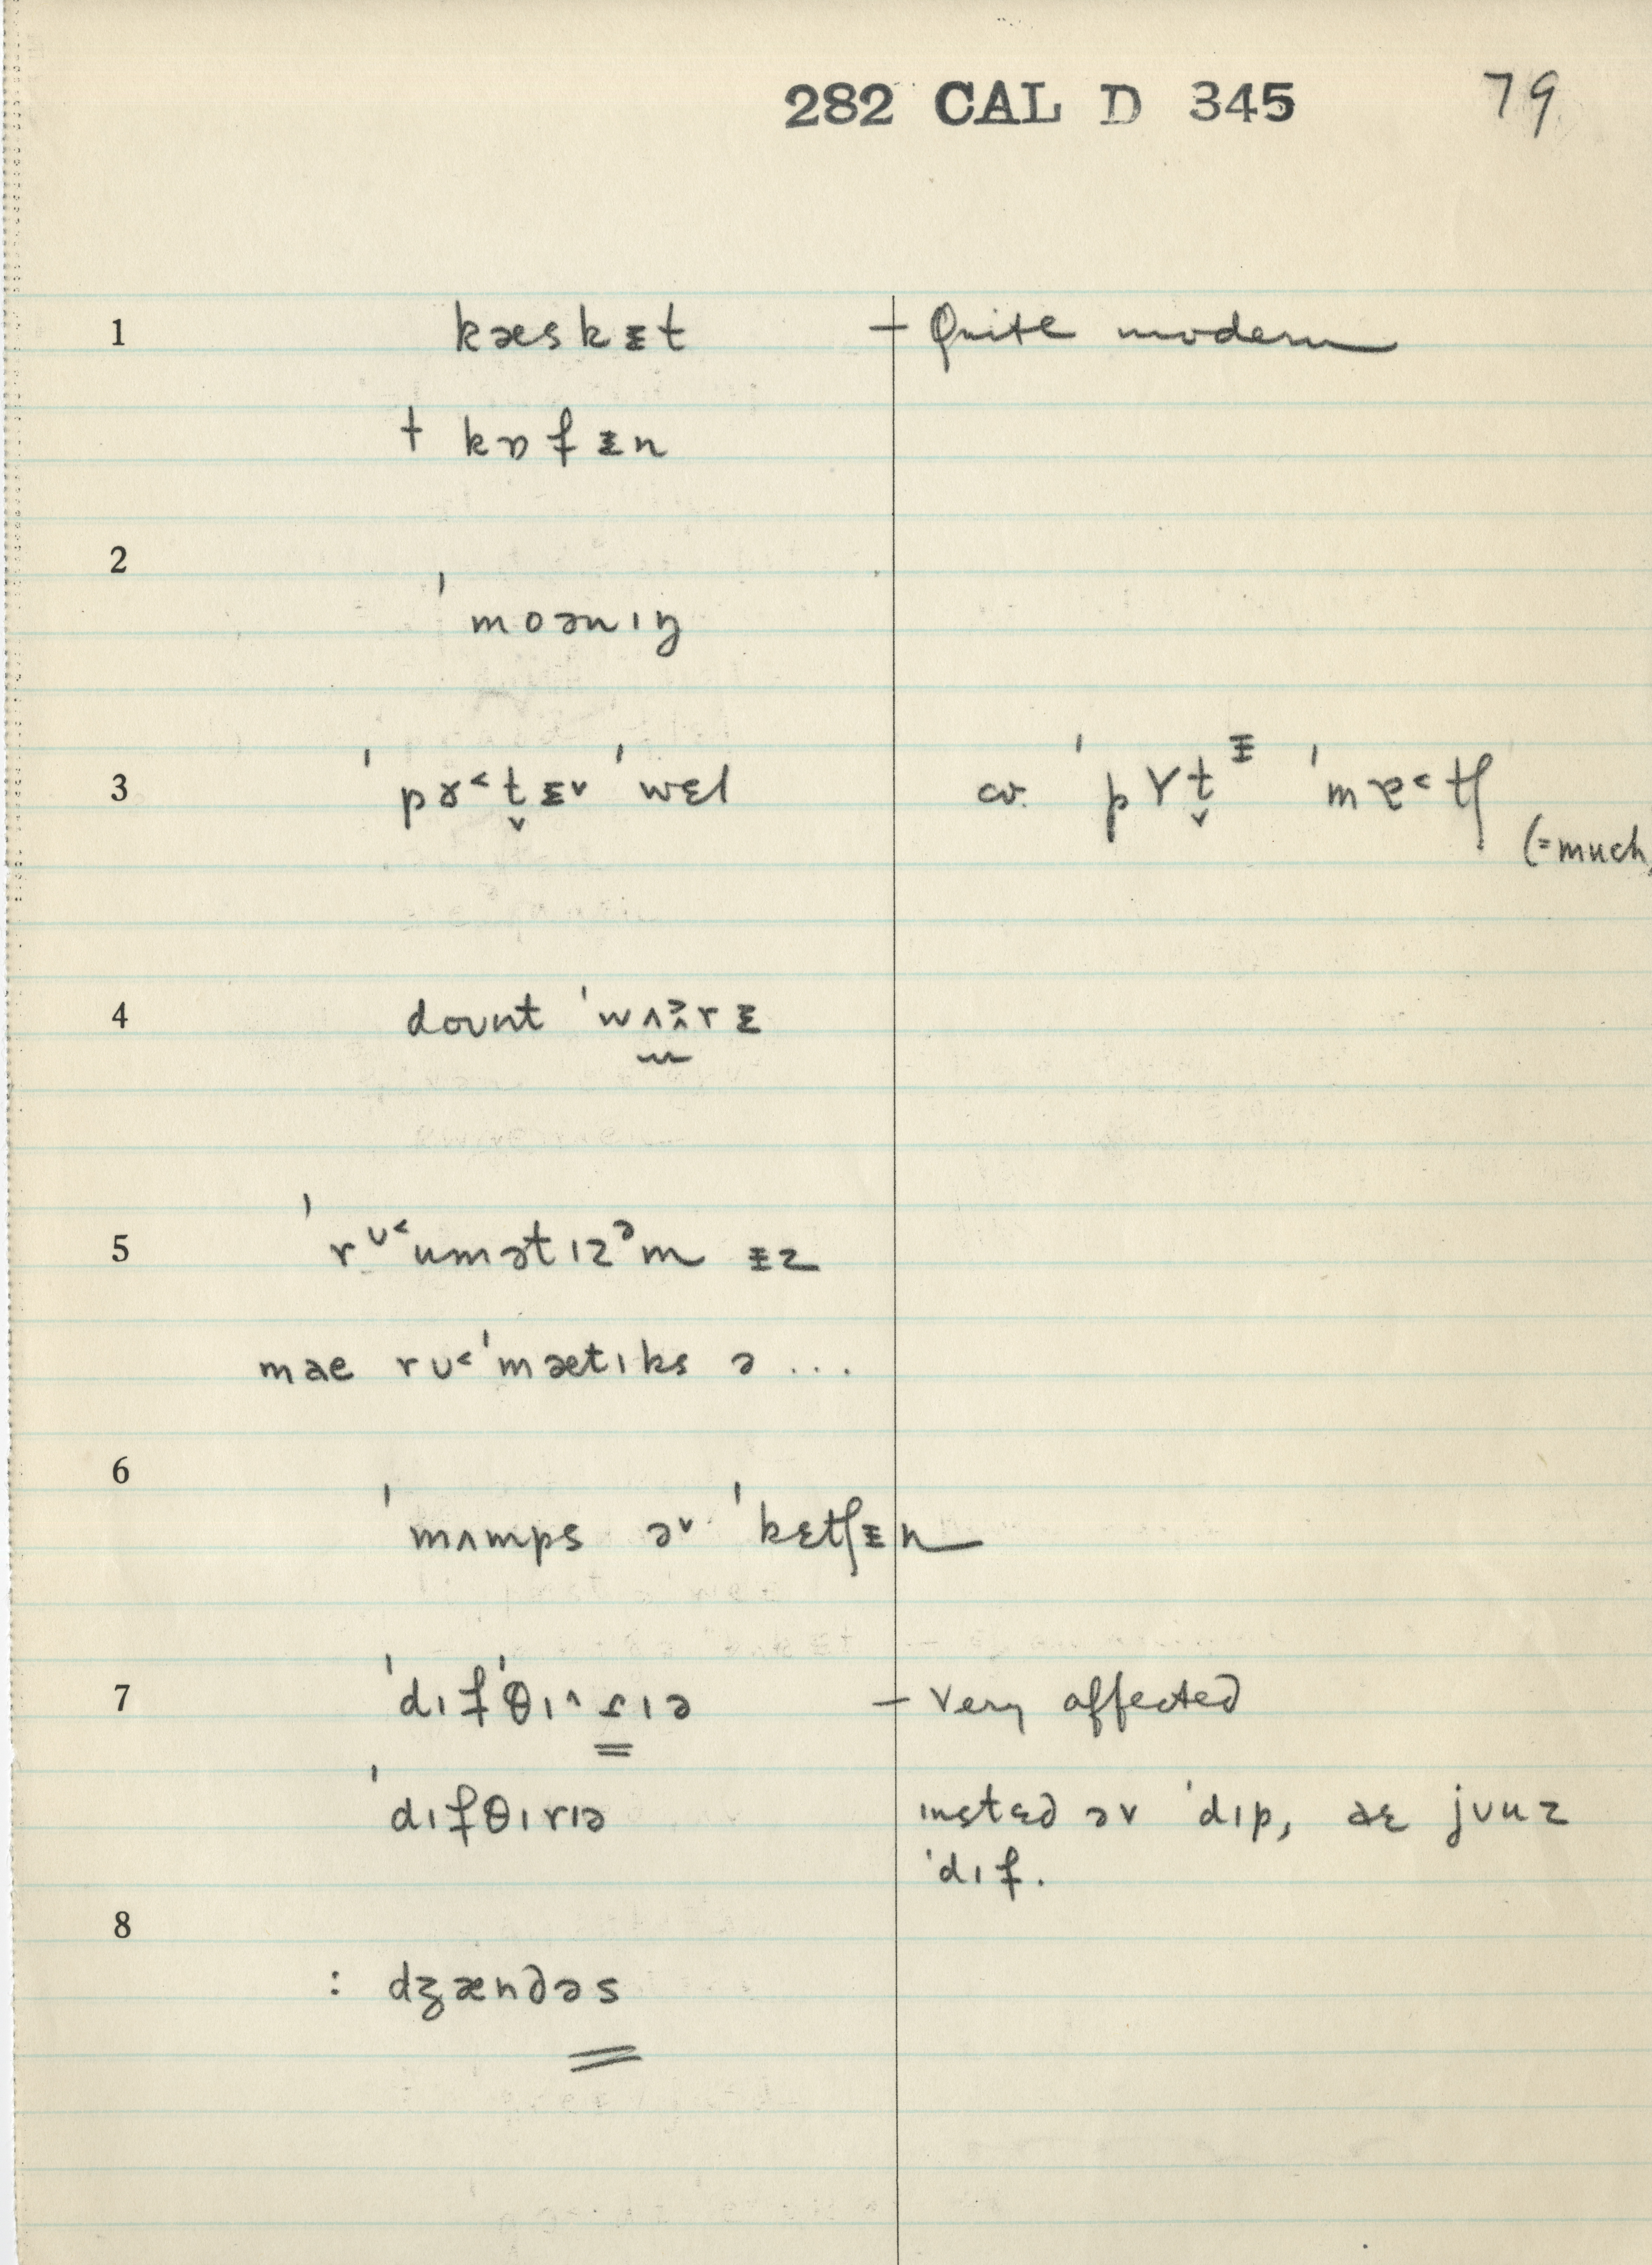 282 CAL D 345 79
1 kæskᵻt — Quite modern
† kɒfᵻn
2
ˈmoənɪŋ
3 ˈpɤ˂t̬ᵻv ˈwɛl cv. ˈpɤt̬ᵻ ˈmɐ˂tʃ
(=much)
4 doʊnt ˈwʌɚrᵻ
5 ˈrᶷ˂umətɪzᵊm ᵻz
mae rʊ˂ˈmætɪks ə ...
6
ˈmʌmps əv ˈkɛtʃᵻn
7 ˈdɪfˈθɪ^ɾɪə — Very affected
ˈdɪfθɪrɪə ɪnstɛd əv ˈdɪp, aɛ jʊuz
ˈdɪf.
8
: dʒændəs